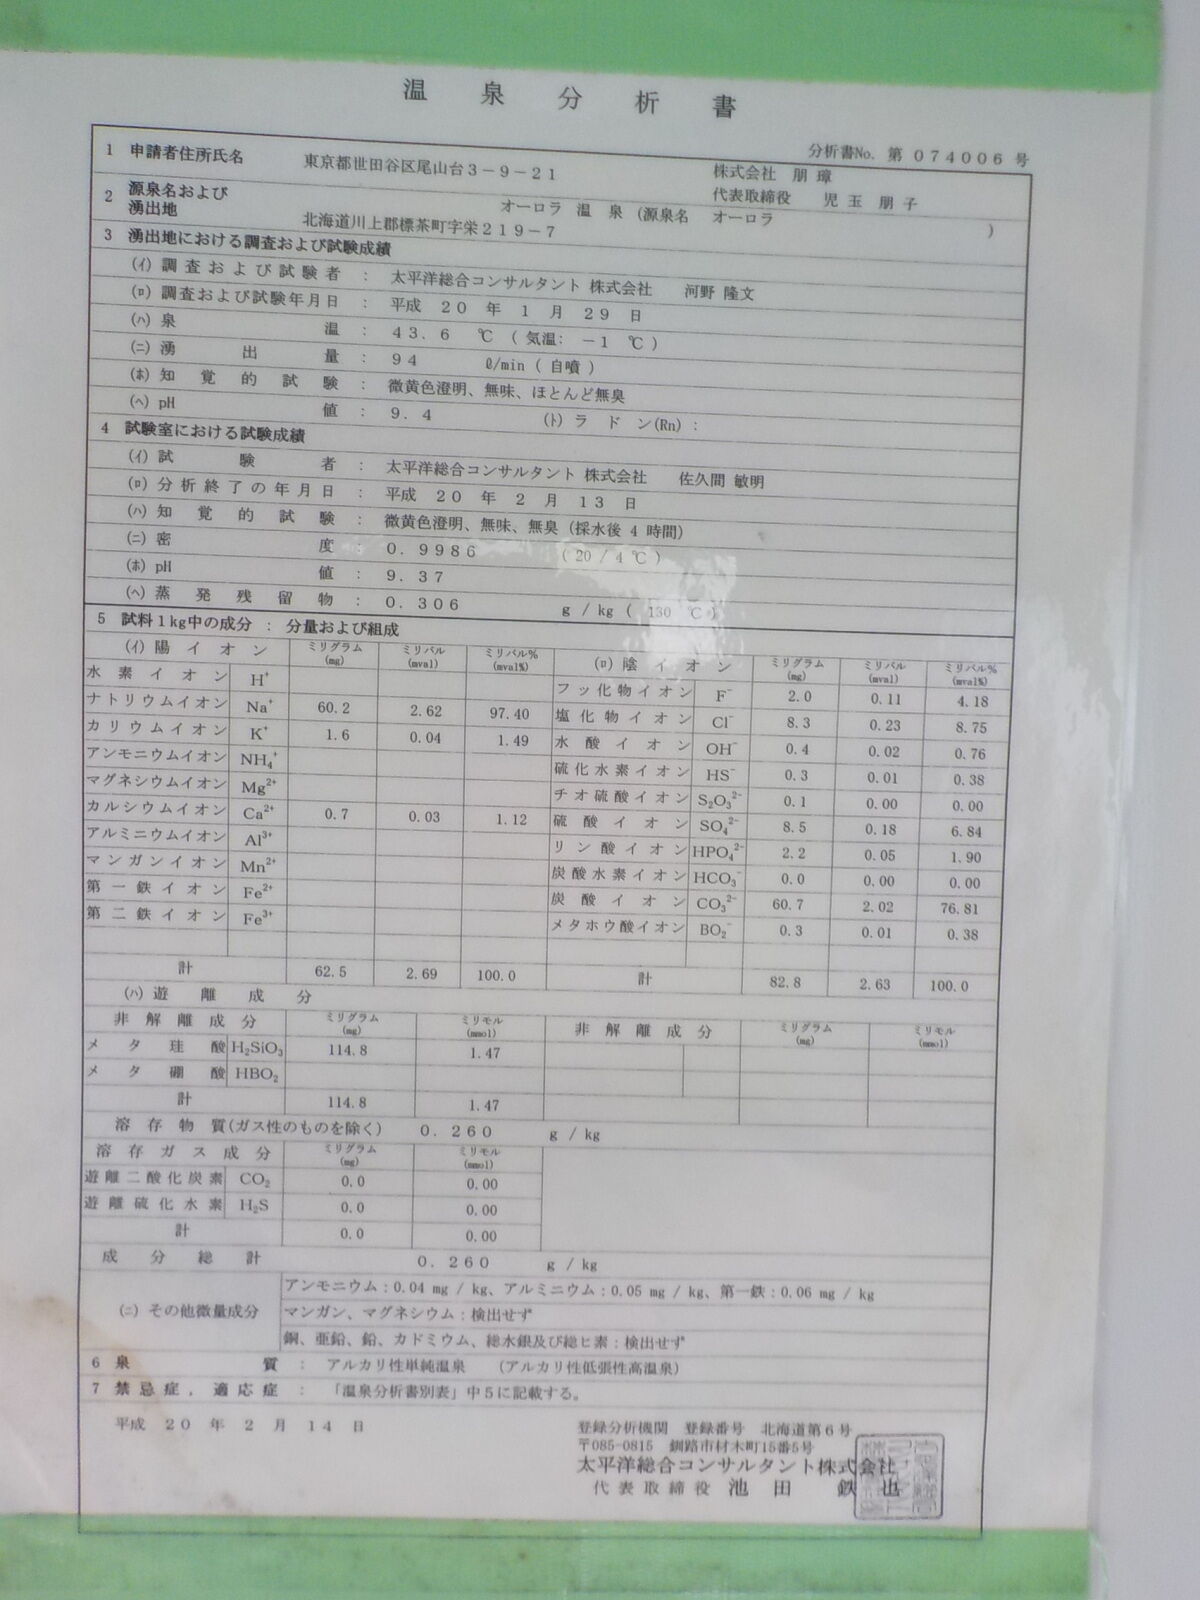 温泉分析書
分析書No. 第 074006 号
1 申請者住所氏名 東京都世田谷区尾山台3-9-21 株式会社 朋璋
代表取締役 児玉 朋子
2 源泉名および湧出地 オーロラ 温泉 (源泉名 オーロラ )
北海道川上郡標茶町字栄219-7
3 湧出地における調査および試験成績
(イ) 調査および試験者 : 太平洋総合コンサルタント 株式会社 河野 隆文
(ロ) 調査および試験年月日 : 平成 20 年 1 月 29 日
(ハ) 泉温 : 43.6 ℃ (気温: -1 ℃)
(ニ) 湧出量 : 94 ℓ/min (自噴)
(ホ) 知覚的試験 : 微黄色澄明、無味、ほとんど無臭
(ヘ) pH値 : 9.4 (ト) ラドン(Rn) :
4 試験室における試験成績
(イ) 試験者 : 太平洋総合コンサルタント 株式会社 佐久間 敏明
(ロ) 分析終了の年月日 : 平成 20 年 2 月 13 日
(ハ) 知覚的試験 : 微黄色澄明、無味、無臭 (採水後 4 時間)
(ニ) 密度 : 0.9986 (20/4℃)
(ホ) pH値 : 9.37
(ヘ) 蒸発残留物 : 0.306 g/kg (130 ℃)
5 試料1kg中の成分 : 分量および組成
(イ) 陽イオン ミリグラム(mg) ミリバル(mval) ミリバル%(mval%) (ロ) 陰イオン ミリグラム(mg) ミリバル(mval) ミリバル%(mval%)
水素イオン H⁺ フッ化物イオン F⁻ 2.0 0.11 4.18
ナトリウムイオン Na⁺ 60.2 2.62 97.40 塩化物イオン Cl⁻ 8.3 0.23 8.75
カリウムイオン K⁺ 1.6 0.04 1.49 水酸イオン OH⁻ 0.4 0.02 0.76
アンモニウムイオン NH₄⁺ 硫化水素イオン HS⁻ 0.3 0.01 0.38
マグネシウムイオン Mg²⁺ チオ硫酸イオン S₂O₃²⁻ 0.1 0.00 0.00
カルシウムイオン Ca²⁺ 0.7 0.03 1.12 硫酸イオン SO₄²⁻ 8.5 0.18 6.84
アルミニウムイオン Al³⁺ リン酸イオン HPO₄²⁻ 2.2 0.05 1.90
マンガンイオン Mn²⁺ 炭酸水素イオン HCO₃⁻ 0.0 0.00 0.00
第一鉄イオン Fe²⁺ 炭酸イオン CO₃²⁻ 60.7 2.02 76.81
第二鉄イオン Fe³⁺ メタホウ酸イオン BO₂⁻ 0.3 0.01 0.38
計 62.5 2.69 100.0 計 82.8 2.63 100.0
(ハ) 遊離成分
非解離成分 ミリグラム(mg) ミリモル(mmol) 非解離成分 ミリグラム(mg) ミリモル(mmol)
メタ珪酸 H₂SiO₃ 114.8 1.47
メタ硼酸 HBO₂
計 114.8 1.47
溶存物質(ガス性のものを除く) 0.260 g/kg
溶存ガス成分 ミリグラム(mg) ミリモル(mmol)
遊離二酸化炭素 CO₂ 0.0 0.00
遊離硫化水素 H₂S 0.0 0.00
計 0.0 0.00
成分総計 0.260 g/kg
(ニ) その他微量成分 アンモニウム:0.04 mg/kg、アルミニウム:0.05 mg/kg、第一鉄:0.06 mg/kg
マンガン、マグネシウム:検出せず
銅、亜鉛、鉛、カドミウム、総水銀及び総ヒ素:検出せず
6 泉質 : アルカリ性単純温泉 (アルカリ性低張性高温泉)
7 禁忌症,適応症 : 「温泉分析書別表」中5に記載する。
平成 20 年 2 月 14 日
登録分析機関 登録番号 北海道第6号
〒085-0815 釧路市材木町15番5号
太平洋総合コンサルタント株式会社
代表取締役 池田 鉄也